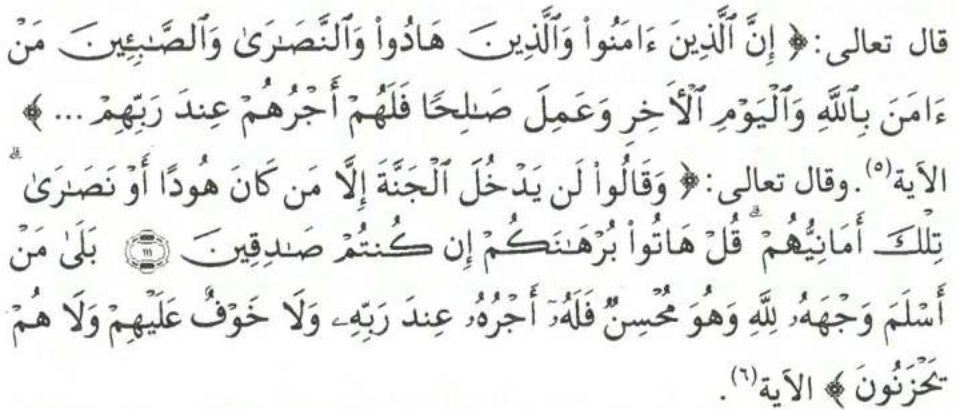 قال تعالى: ﴿ إِنَّ ٱلَّذِينَ ءَامَنُوا۟ وَٱلَّذِينَ هَادُوا۟ وَٱلنَّصَـٰرَىٰ وَٱلصَّـٰبِـِٔينَ مَنْ
ءَامَنَ بِٱللَّهِ وَٱلْيَوْمِ ٱلْـَٔاخِرِ وَعَمِلَ صَـٰلِحًا فَلَهُمْ أَجْرُهُمْ عِندَ رَبِّهِمْ ... ﴾
الآية(٥). وقال تعالى: ﴿ وَقَالُوا۟ لَن يَدْخُلَ ٱلْجَنَّةَ إِلَّا مَن كَانَ هُودًا أَوْ نَصَـٰرَىٰ ۗ
تِلْكَ أَمَانِيُّهُمْ ۗ قُلْ هَاتُوا۟ بُرْهَـٰنَكُمْ إِن كُنتُمْ صَـٰدِقِينَ ١١١ بَلَىٰ مَنْ
أَسْلَمَ وَجْهَهُۥ لِلَّهِ وَهُوَ مُحْسِنٌ فَلَهُۥٓ أَجْرُهُۥ عِندَ رَبِّهِۦ وَلَا خَوْفٌ عَلَيْهِمْ وَلَا هُمْ
يَحْزَنُونَ ﴾ الآية(٦).